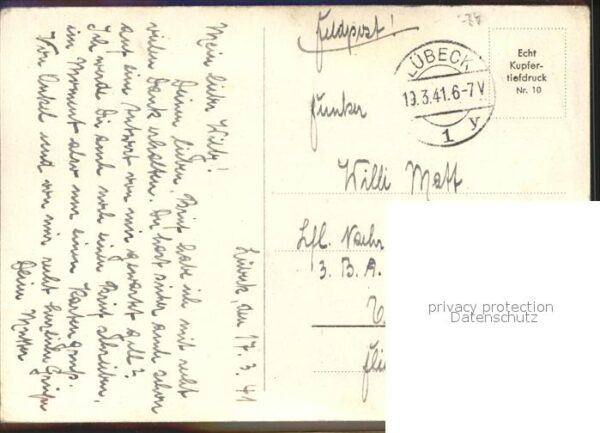 Lübeck, den 17.3.41
Mein lieber Willy!
Deinen lieben Brief habe ich mit recht
vielen Dank erhalten. Du hast sicher auch schon
auf eine Antwort von mir gewartet gell?
Ich werde Dir auch noch einen Brief schreiben,
im Moment aber nur einen Kartengruß.
Von Onkel und von mir recht herzliche Grüße
Deine
Feldpost!
LÜBECK
19.3.41.6-7V
1 y
Echt
Kupfer-
tiefdruck
Nr. 10
Funker
Willi Matt
Lfl. Nachr
3. B.A.
privacy protection
Datenschutz